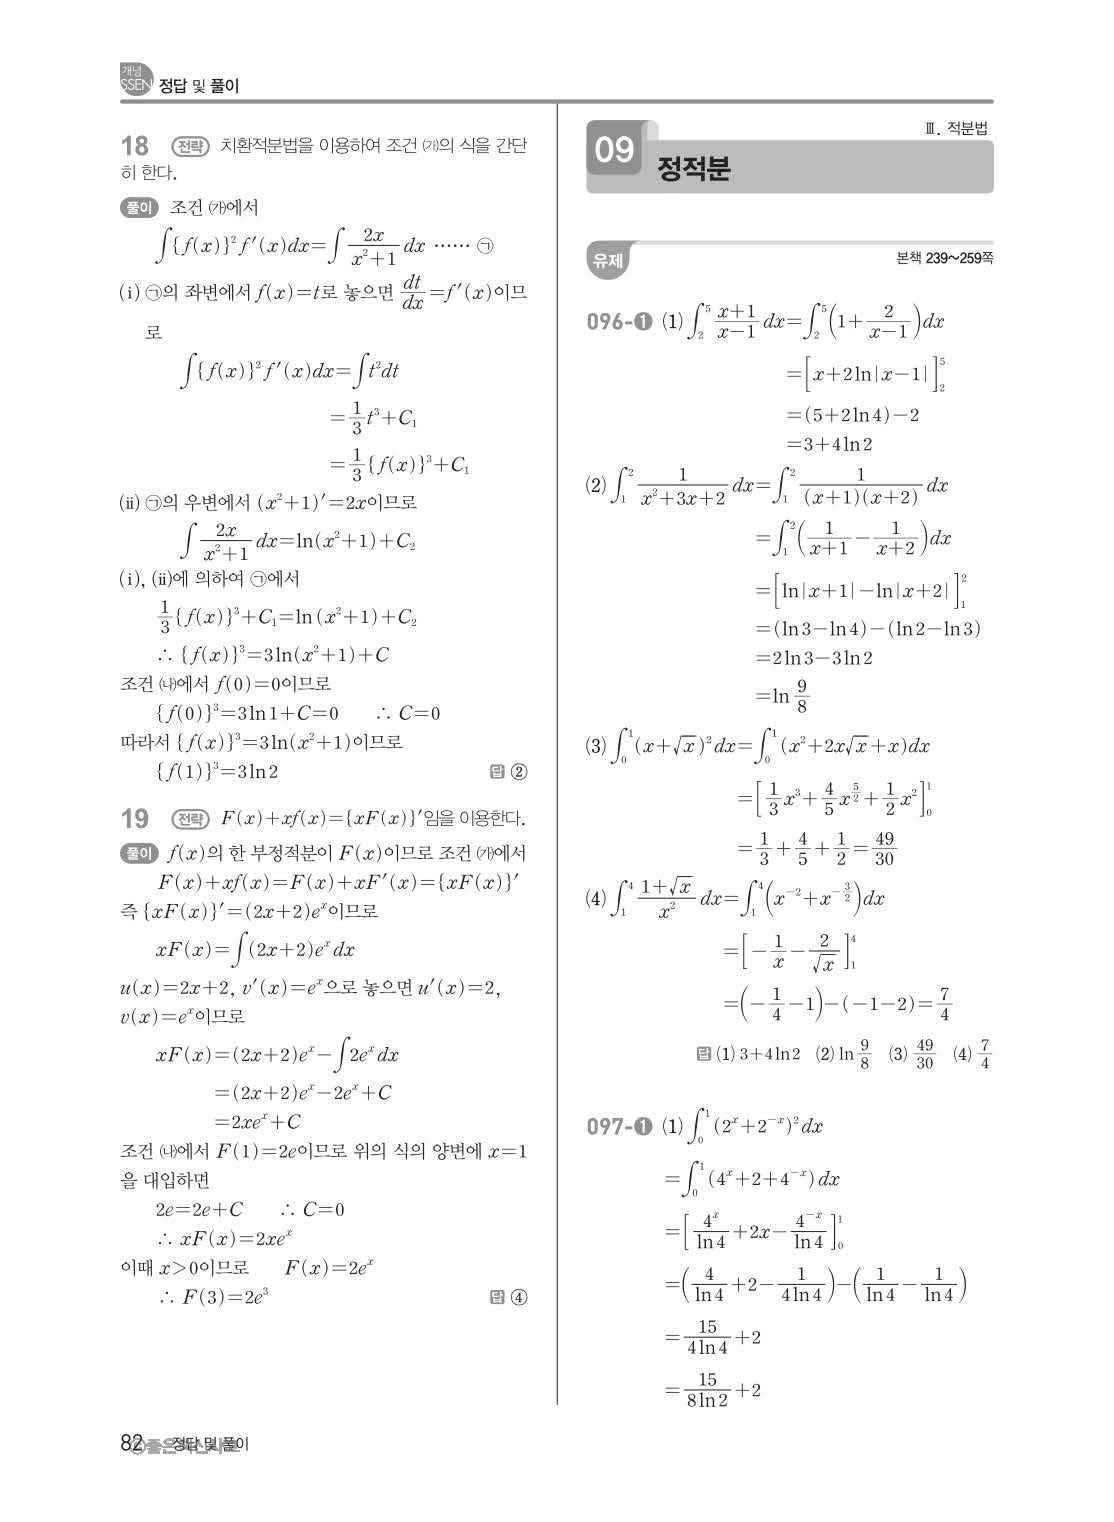 개념
SSEN 정답 및 풀이
18 전략 치환적분법을 이용하여 조건 ㈎의 식을 간단
히 한다.
풀이 조건 ㈎에서
∫{f(x)}²f′(x)dx=∫ 2x/(x²+1) dx …… ㉠
(ⅰ) ㉠의 좌변에서 f(x)=t로 놓으면 dt/dx=f′(x)이므
로
∫{f(x)}²f′(x)dx=∫t²dt
=1/3 t³+C₁
=1/3 {f(x)}³+C₁
(ⅱ) ㉠의 우변에서 (x²+1)′=2x이므로
∫ 2x/(x²+1) dx=ln(x²+1)+C₂
(ⅰ), (ⅱ)에 의하여 ㉠에서
1/3 {f(x)}³+C₁=ln(x²+1)+C₂
∴ {f(x)}³=3ln(x²+1)+C
조건 ㈏에서 f(0)=0이므로
{f(0)}³=3ln1+C=0 ∴ C=0
따라서 {f(x)}³=3ln(x²+1)이므로
{f(1)}³=3ln2 답 ②
19 전략 F(x)+xf(x)={xF(x)}′임을 이용한다.
풀이 f(x)의 한 부정적분이 F(x)이므로 조건 ㈎에서
F(x)+xf(x)=F(x)+xF′(x)={xF(x)}′
즉 {xF(x)}′=(2x+2)eˣ이므로
xF(x)=∫(2x+2)eˣdx
u(x)=2x+2, v′(x)=eˣ으로 놓으면 u′(x)=2,
v(x)=eˣ이므로
xF(x)=(2x+2)eˣ-∫2eˣdx
=(2x+2)eˣ-2eˣ+C
=2xeˣ+C
조건 ㈏에서 F(1)=2e이므로 위의 식의 양변에 x=1
을 대입하면
2e=2e+C ∴ C=0
∴ xF(x)=2xeˣ
이때 x>0이므로 F(x)=2eˣ
∴ F(3)=2e³ 답 ④
82 정답 및 풀이
Ⅲ. 적분법
09 정적분
유제 본책 239~259쪽
096-❶ (1) ∫₂⁵ (x+1)/(x-1) dx=∫₂⁵(1+2/(x-1))dx
=[x+2ln|x-1|]₂⁵
=(5+2ln4)-2
=3+4ln2
(2) ∫₁² 1/(x²+3x+2) dx=∫₁² 1/((x+1)(x+2)) dx
=∫₁²(1/(x+1)-1/(x+2))dx
=[ln|x+1|-ln|x+2|]₁²
=(ln3-ln4)-(ln2-ln3)
=2ln3-3ln2
=ln 9/8
(3) ∫₀¹(x+√x)²dx=∫₀¹(x²+2x√x+x)dx
=[1/3 x³+4/5 x^(5/2)+1/2 x²]₀¹
=1/3+4/5+1/2=49/30
(4) ∫₁⁴ (1+√x)/x² dx=∫₁⁴(x⁻²+x^(-3/2))dx
=[-1/x-2/√x]₁⁴
=(-1/4-1)-(-1-2)=7/4
답 (1) 3+4ln2 (2) ln 9/8 (3) 49/30 (4) 7/4
097-❶ (1) ∫₀¹(2ˣ+2⁻ˣ)²dx
=∫₀¹(4ˣ+2+4⁻ˣ)dx
=[4ˣ/ln4+2x-4⁻ˣ/ln4]₀¹
=(4/ln4+2-1/(4ln4))-(1/ln4-1/ln4)
=15/(4ln4)+2
=15/(8ln2)+2